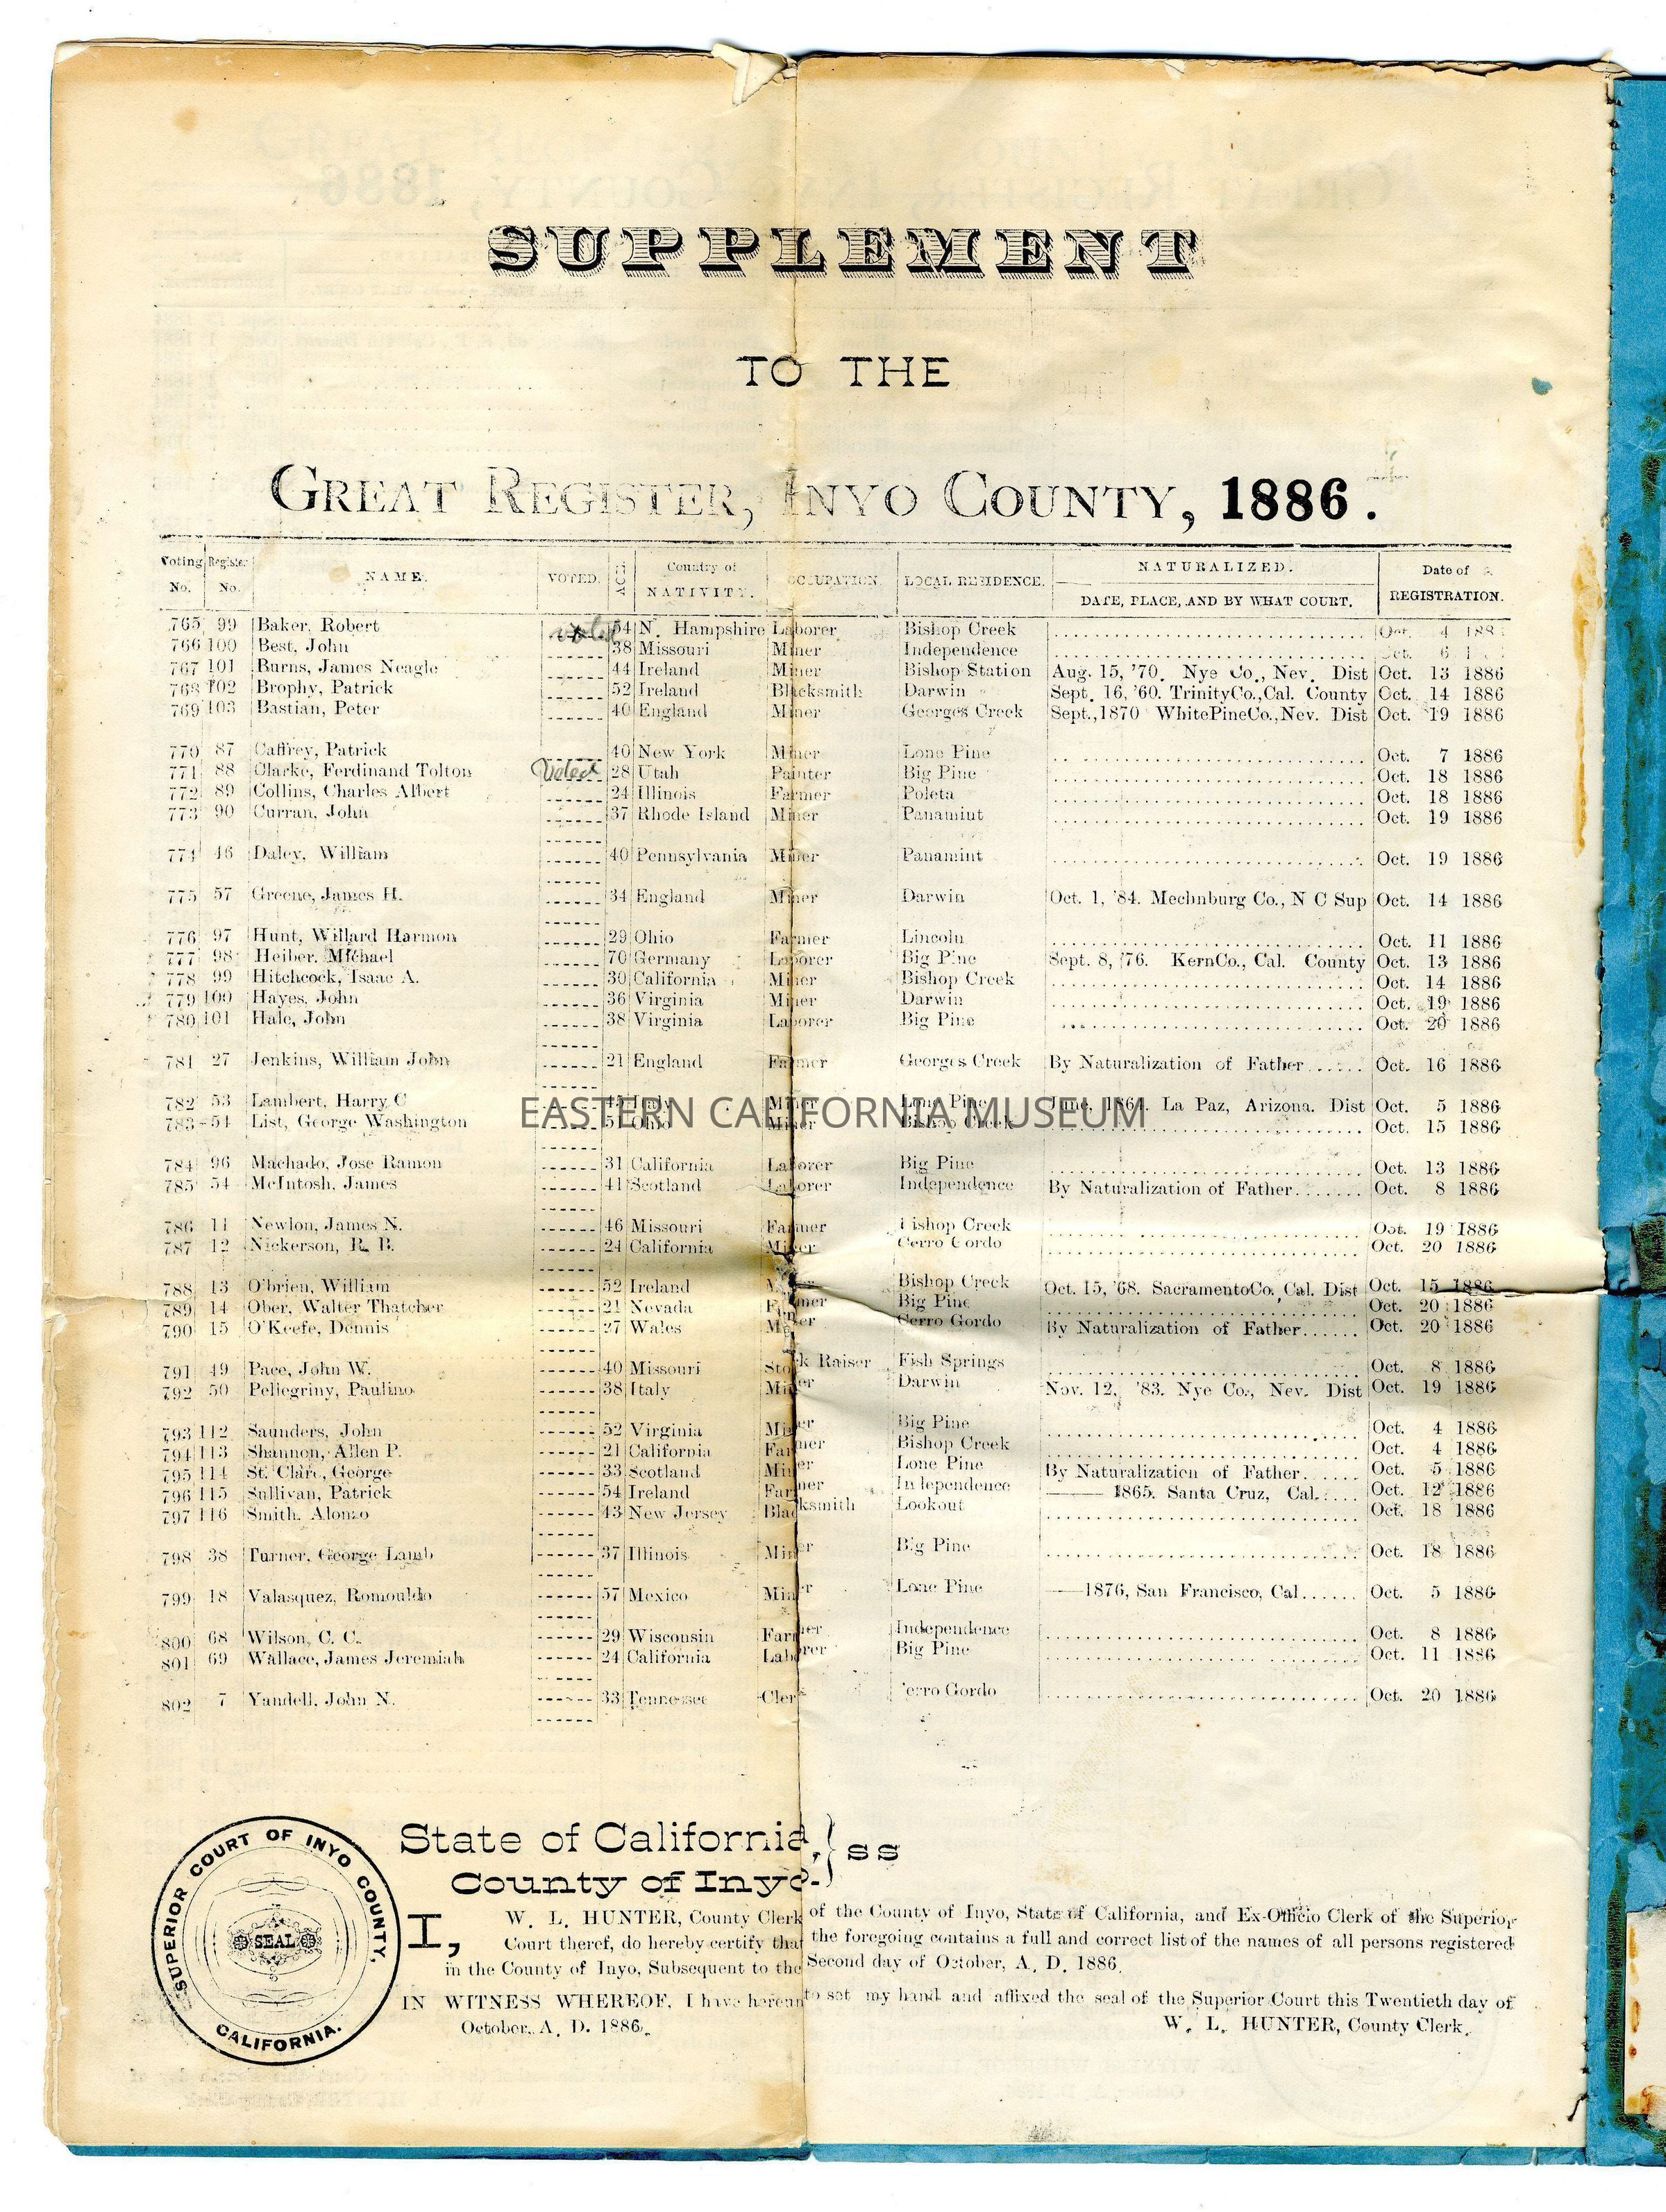 SUPPLEMENT
TO THE
GREAT REGISTER, INYO COUNTY, 1886.
Voting No. Register No. NAME. VOTED. AGE Country of NATIVITY. OCCUPATION. LOCAL RESIDENCE. NATURALIZED. DATE, PLACE, AND BY WHAT COURT. Date of REGISTRATION.
765 99 Baker, Robert voted 54 N. Hampshire Laborer Bishop Creek Oct. 4 188
766 100 Best, John 38 Missouri Miner Independence Oct. 6
767 101 Burns, James Neagle 44 Ireland Miner Bishop Station Aug. 15, '70. Nye Co., Nev. Dist Oct. 13 1886
768 102 Brophy, Patrick 52 Ireland Blacksmith Darwin Sept. 16, '60. TrinityCo., Cal. County Oct. 14 1886
769 103 Bastian, Peter 40 England Miner Georges Creek Sept., 1870 WhitePineCo., Nev. Dist Oct. 19 1886
770 87 Caffrey, Patrick 40 New York Miner Lone Pine Oct. 7 1886
771 88 Clarke, Ferdinand Tolton Voted 28 Utah Painter Big Pine Oct. 18 1886
772 89 Collins, Charles Albert 24 Illinois Farmer Poleta Oct. 18 1886
773 90 Curran, John 37 Rhode Island Miner Panamint Oct. 19 1886
774 46 Daley, William 40 Pennsylvania Miner Panamint Oct. 19 1886
775 57 Greene, James H. 34 England Miner Darwin Oct. 1, '84. Mechnburg Co., N C Sup Oct. 14 1886
776 97 Hunt, Willard Harmon 29 Ohio Farmer Lincoln Oct. 11 1886
777 98 Heiber. Michael 70 Germany Laborer Big Pine Sept. 8, '76. KernCo., Cal. County Oct. 13 1886
778 99 Hitchcock, Isaac A. 30 California Miner Bishop Creek Oct. 14 1886
779 100 Hayes, John 36 Virginia Miner Darwin Oct. 19 1886
780 101 Hale, John 38 Virginia Laborer Big Pine Oct. 20 1886
781 27 Jenkins, William John 21 England Farmer Georges Creek By Naturalization of Father...... Oct. 16 1886
782 53 Lambert, Harry C 45 Italy Miner Lone Pine June, 1864. La Paz, Arizona. Dist Oct. 5 1886
783 54 List, George Washington 51 Ohio Miner Bishop Creek Oct. 15 1886
EASTERN CALIFORNIA MUSEUM
784 96 Machado, Jose Ramon 31 California Laborer Big Pine Oct. 13 1886
785 54 McIntosh, James 41 Scotland Laborer Independence By Naturalization of Father....... Oct. 8 1886
786 11 Newlon, James N. 46 Missouri Farmer Bishop Creek Oct. 19 1886
787 12 Nickerson, R. B. 24 California Miner Cerro Gordo Oct. 20 1886
788 13 O'brien, William 52 Ireland Bishop Creek Oct. 15, '68. SacramentoCo. Cal. Dist Oct. 15 1886
789 14 Ober, Walter Thatcher 21 Nevada Farmer Big Pine Oct. 20 1886
790 15 O'Keefe, Dennis 27 Wales Miner Cerro Gordo By Naturalization of Father...... Oct. 20 1886
791 49 Pace, John W. 40 Missouri Stock Raiser Fish Springs Oct. 8 1886
792 50 Pellegriny, Paulino 38 Italy Miner Darwin Nov. 12, '83. Nye Co., Nev. Dist Oct. 19 1886
793 112 Saunders, John 52 Virginia Miner Big Pine Oct. 4 1886
794 113 Shannon, Allen P. 21 California Farmer Bishop Creek Oct. 4 1886
795 114 St. Clair, George 33 Scotland Miner Lone Pine By Naturalization of Father...... Oct. 5 1886
796 115 Sullivan, Patrick 54 Ireland Farmer Independence —— 1865. Santa Cruz, Cal..... Oct. 12 1886
797 116 Smith. Alonzo 43 New Jersey Blacksmith Lookout Oct. 18 1886
798 38 Turner, George Lamb 37 Illinois Miner Big Pine Oct. 18 1886
799 18 Valasquez, Romouldo 57 Mexico Miner Lone Pine ——1876, San Francisco, Cal...... Oct. 5 1886
800 68 Wilson, C. C. 29 Wisconsin Farmer Independence Oct. 8 1886
801 69 Wallace, James Jeremiah 24 California Laborer Big Pine Oct. 11 1886
802 7 Yandell, John N. 33 Tennessee Clerk Cerro Gordo Oct. 20 1886
SUPERIOR COURT OF INYO COUNTY, CALIFORNIA.
SEAL
State of California, } ss
County of Inyo.
I, W. L. HUNTER, County Clerk of the County of Inyo, State of California, and Ex-Officio Clerk of the Superior
Court theref, do hereby certify that the foregoing contains a full and correct list of the names of all persons registered
in the County of Inyo, Subsequent to the Second day of October, A. D. 1886.
IN WITNESS WHEREOF, I have hereunto set my hand and affixed the seal of the Superior Court this Twentieth day of
October, A. D. 1886.
W. L. HUNTER, County Clerk.